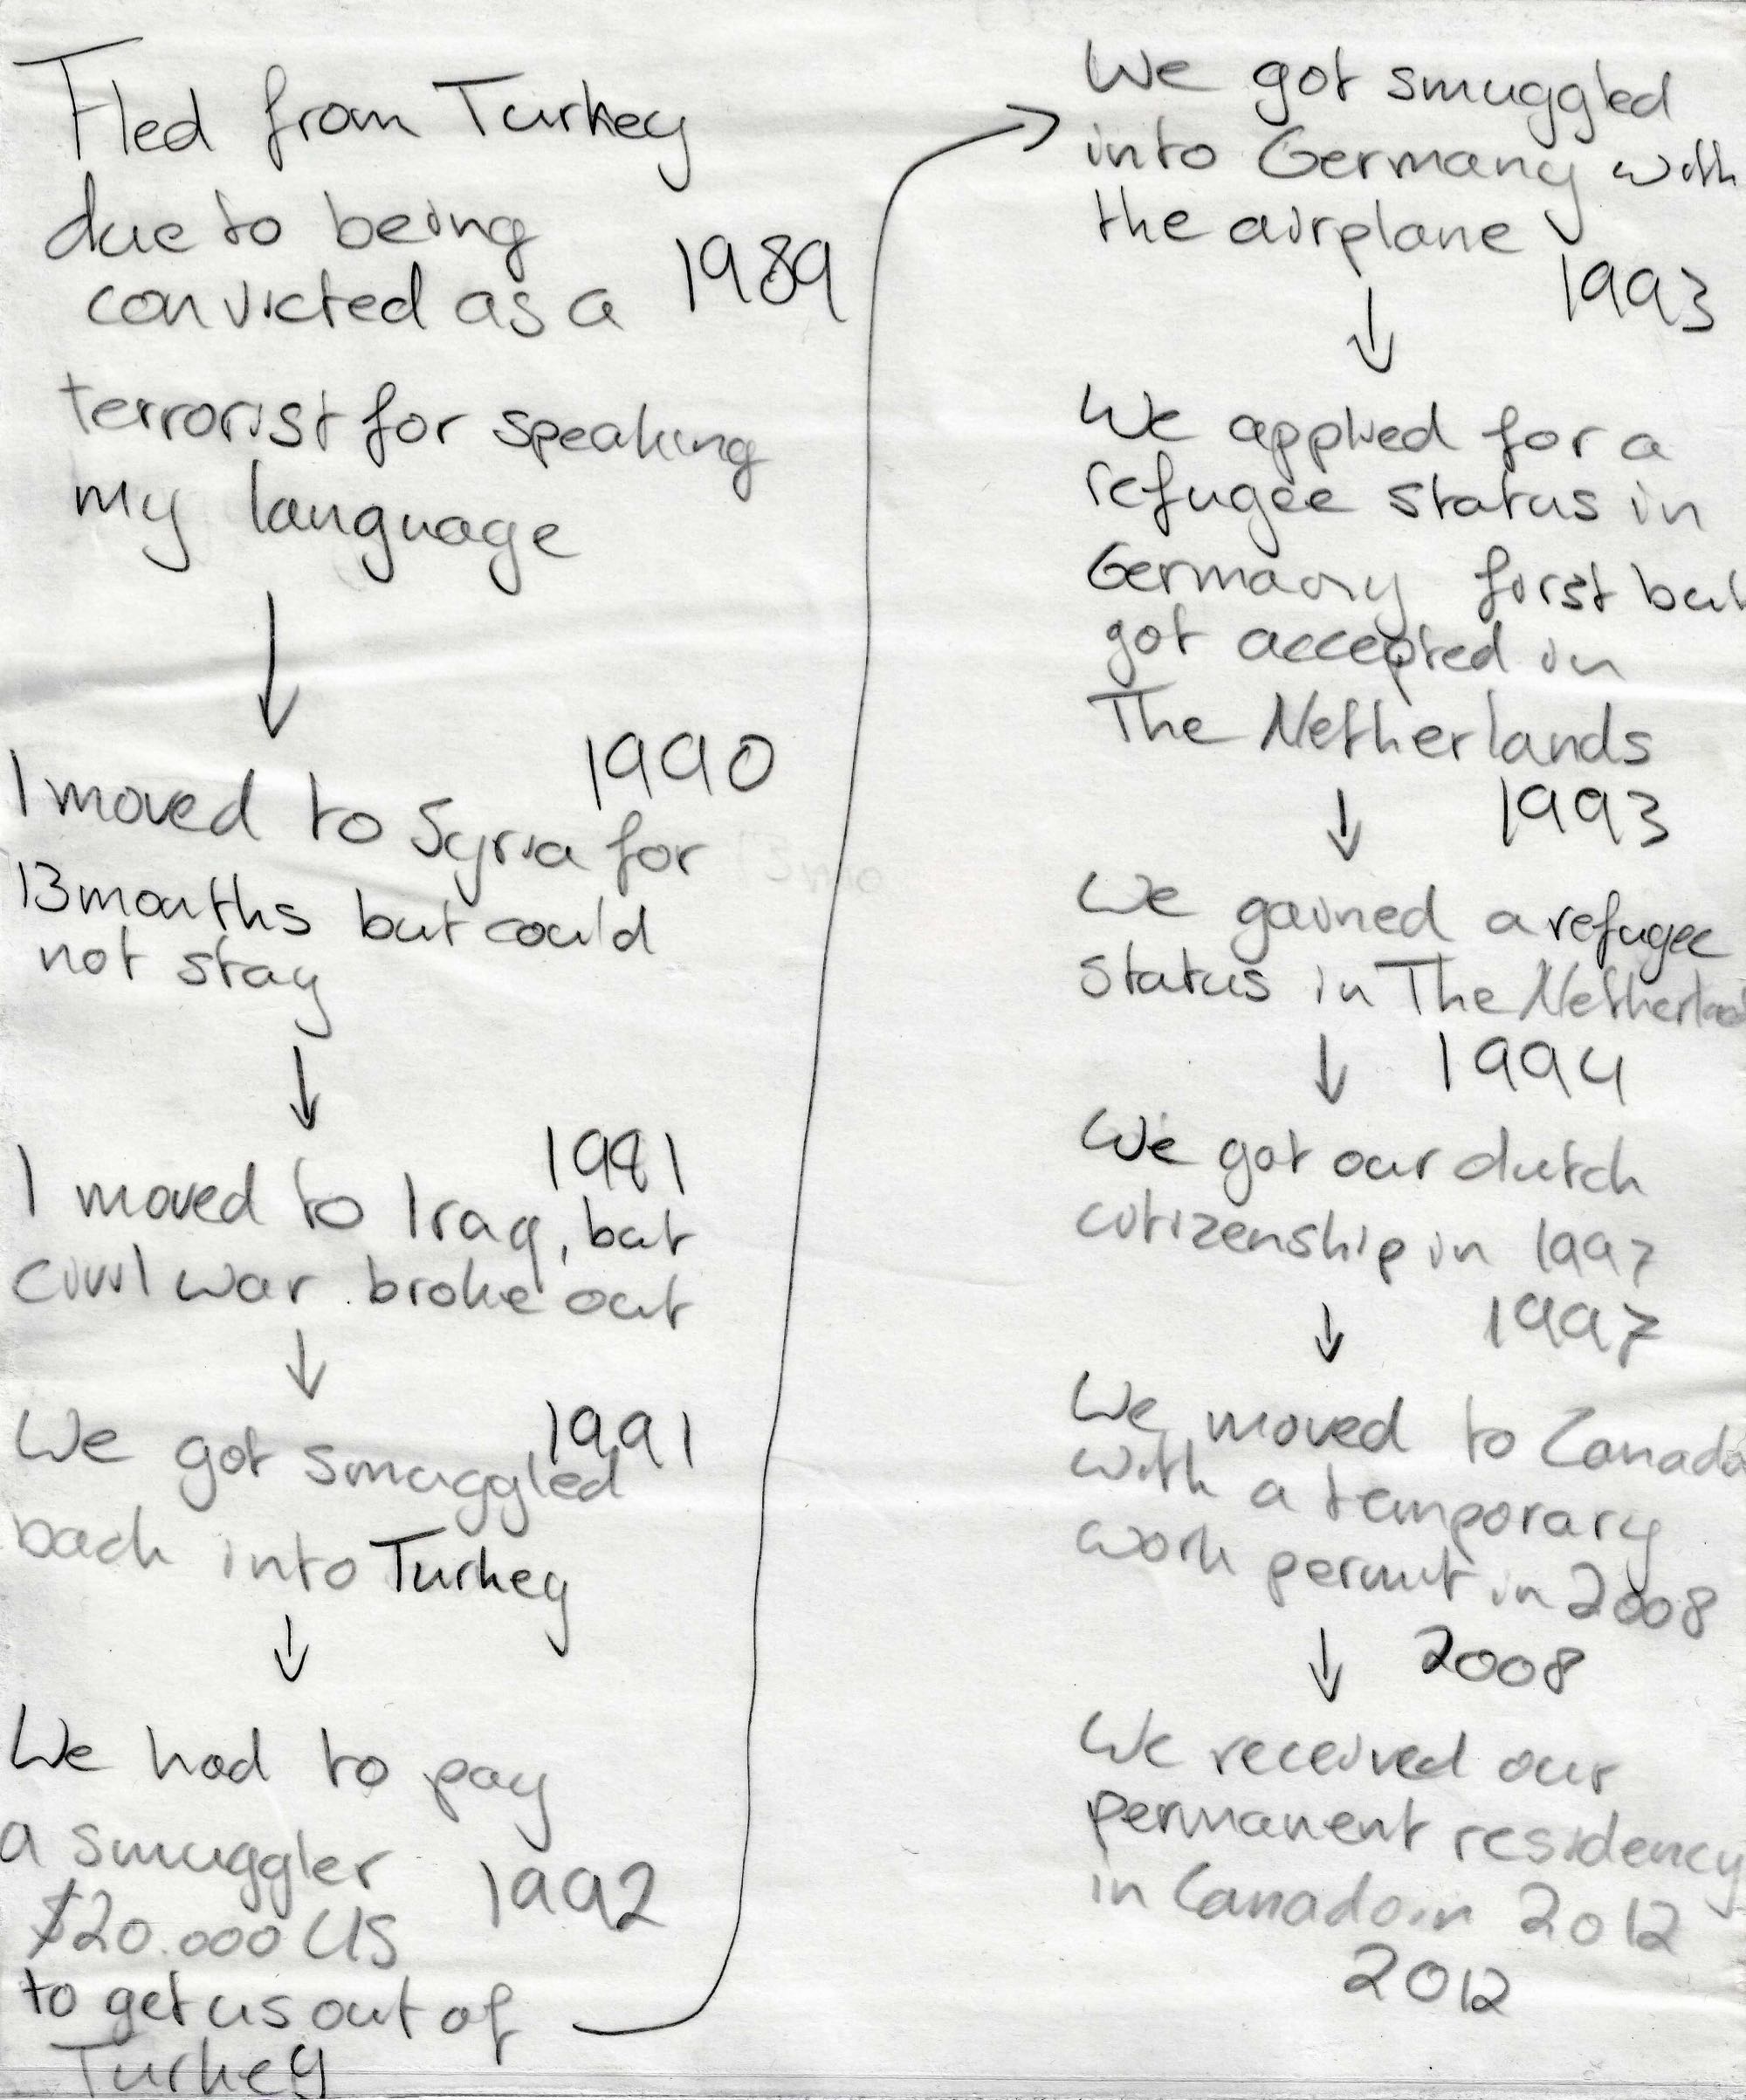 Fled from Turkey
due to being
convicted as a
1989
terrorist for speaking
my language
↓
1990
I moved to Syria for
13 months but could
not stay
↓
1981
I moved to Iraq, but
civil war broke out
↓
1991
We got smuggled
back into Turkey
↓
We had to pay
a smuggler
1992
$20.000 US
to get us out of
Turkey
We got smuggled
into Germany with
the airplane
1993
↓
We applied for a
refugee status in
Germany first but
got accepted in
The Netherlands
1993
↓
We gained a refugee
status in The Netherlands
↓ 1994
We got our dutch
citizenship in 1997
↓ 1997
We moved to Canada
with a temporary
work permit in 2008
↓ 2008
We received our
permanent residency
in Canada in 2012
2012